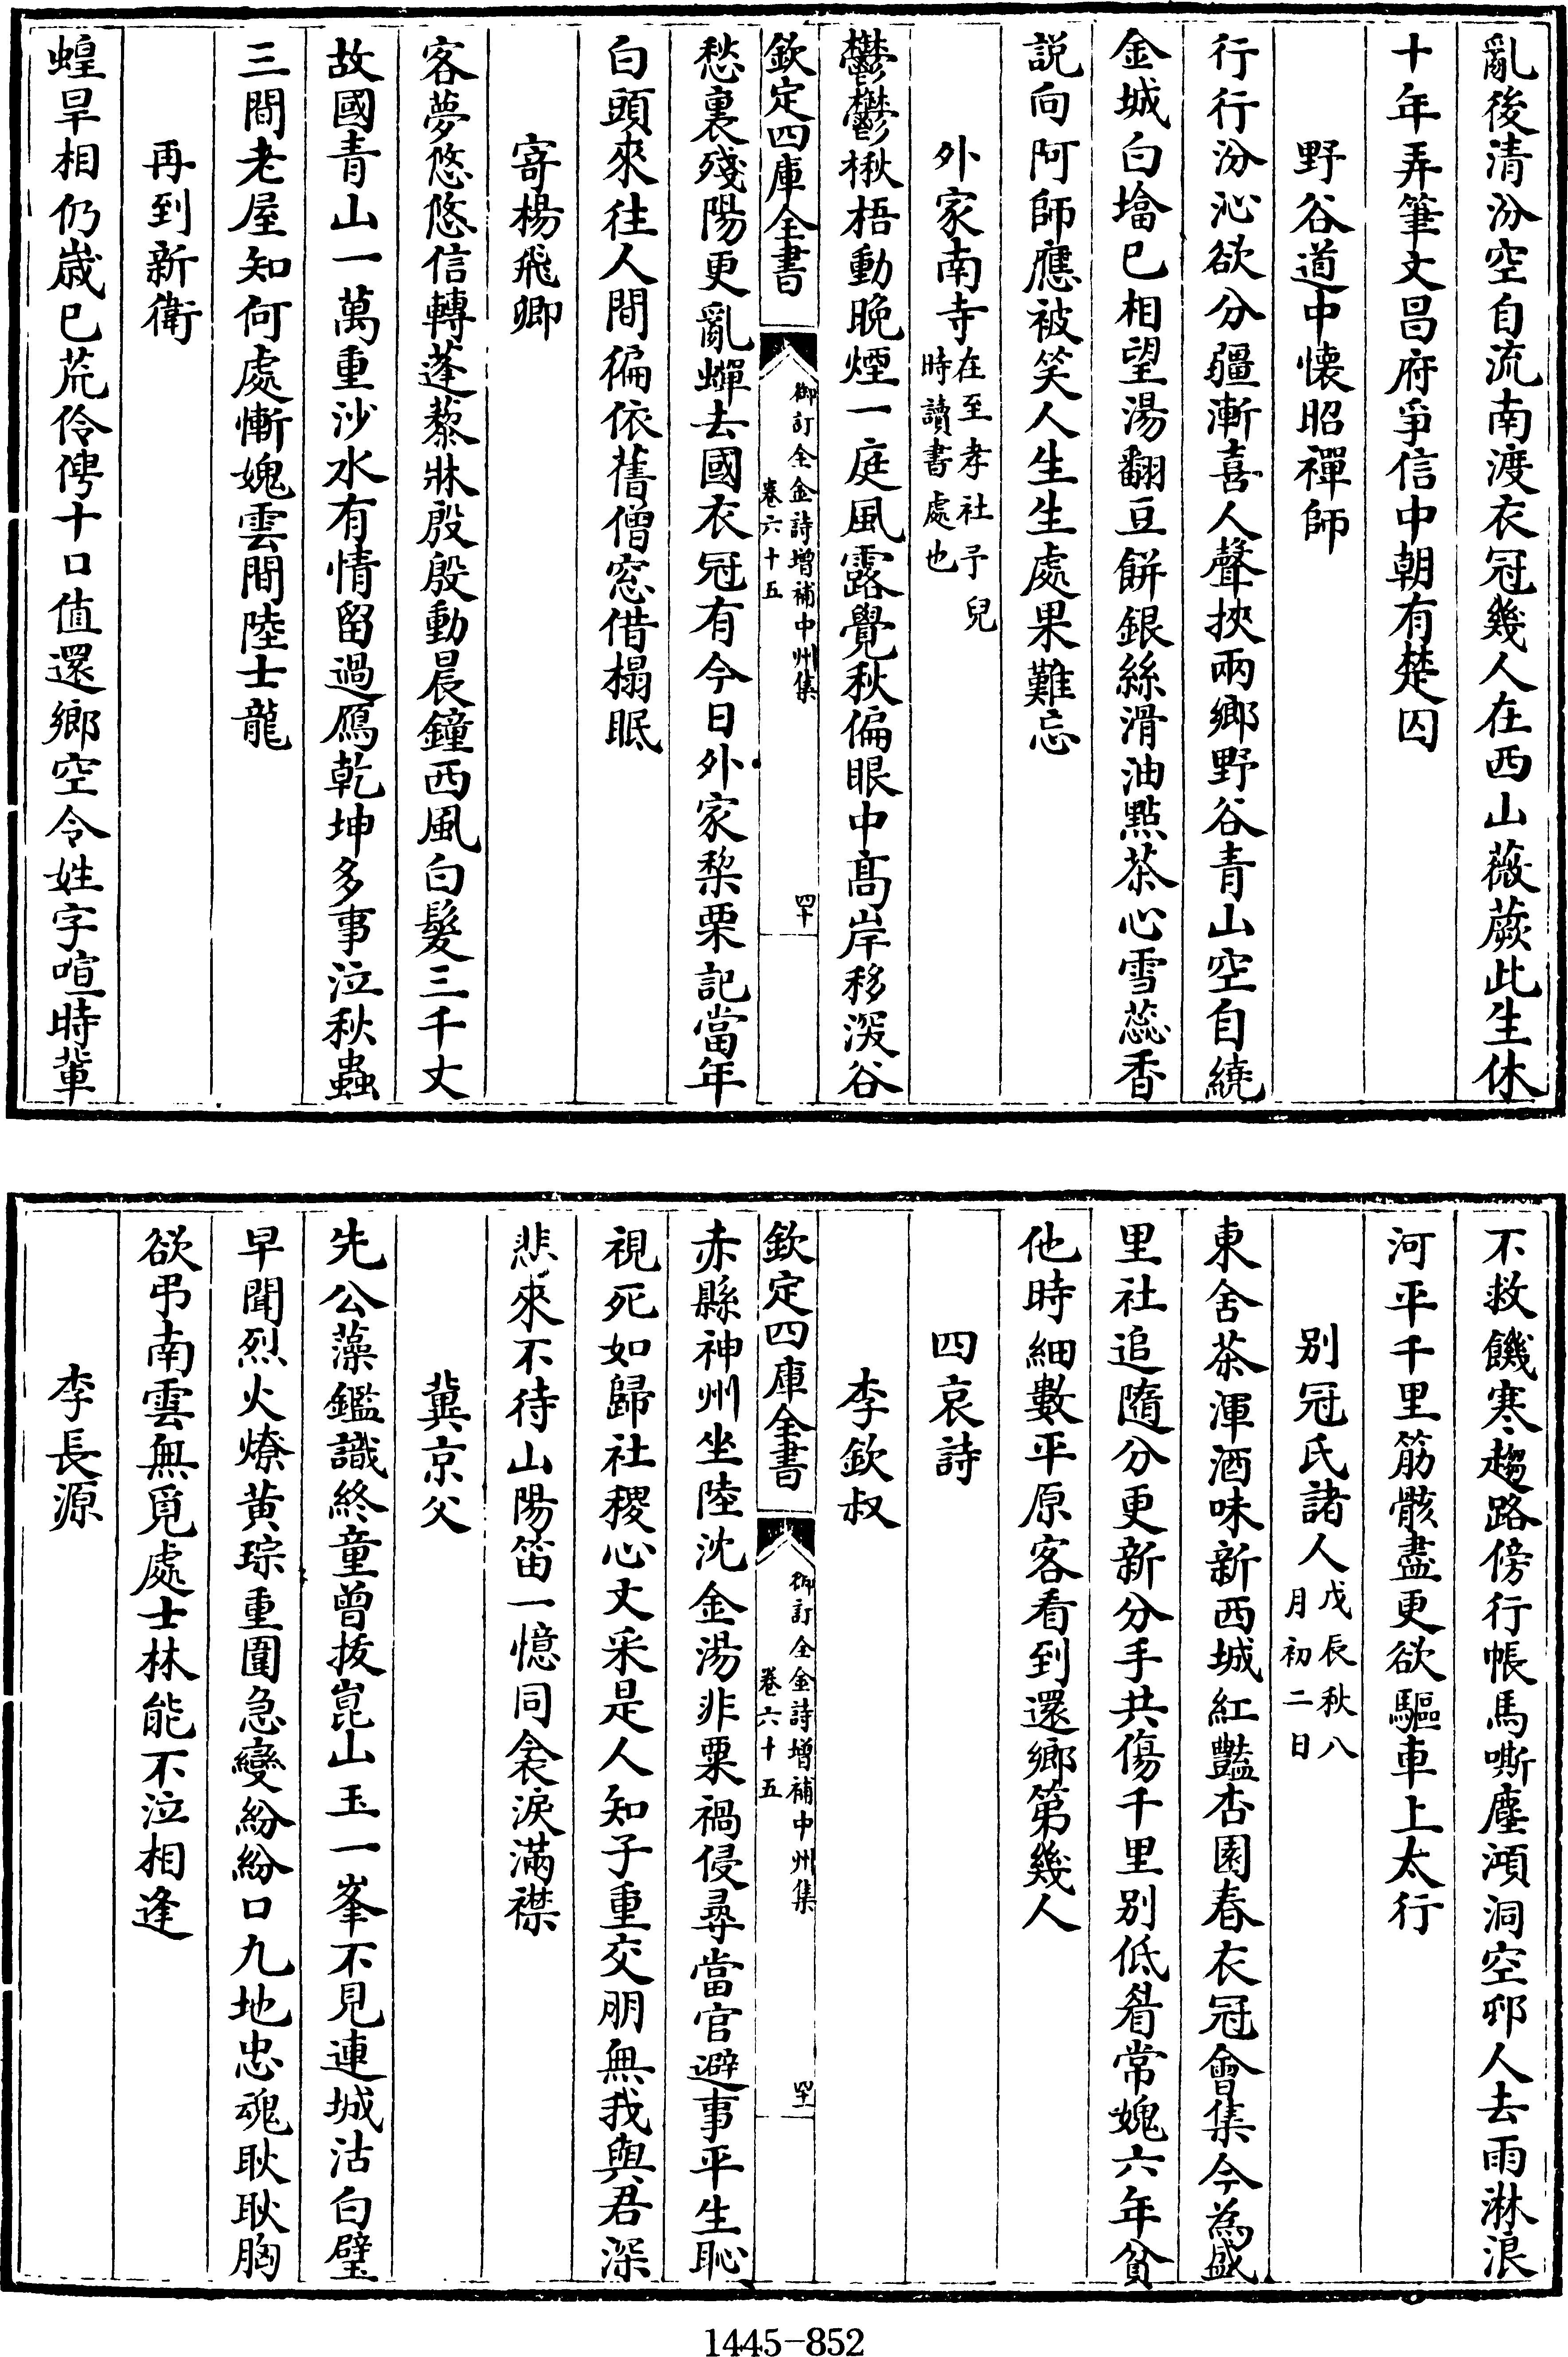 亂後清汾空自流南渡衣冠幾人在西山薇蕨此生休
十年弄筆文昌府爭信中朝有楚囚
野谷道中懷昭禪師
行行汾沁欲分疆漸喜人聲挾兩鄉野谷青山空自繞
金城白塔已相望湯翻豆餅銀絲滑油點茶心雪蕊香
説向阿師應被笑人生生處果難忘
外家南寺在至孝社予兒
時讀書處也
鬱鬱楸梧動晚煙一庭風露覺秋偏眼中髙岸移深谷
欽定四庫全書
御訂全金詩增補中州集
卷六十五
四十
愁裏殘陽更亂蟬去國衣冠有今日外家棃栗記當年
白頭來往人間徧依舊僧窓借榻眠
寄楊飛卿
客夢悠悠信轉蓬藜牀殷殷動晨鐘西風白髮三千丈
故國青山一萬重沙水有情留過鴈乾坤多事泣秋蟲
三間老屋知何處慚媿雲間陸士龍
再到新衛
蝗旱相仍嵗已荒伶俜十口值還鄉空令姓字喧時輩
不救饑寒趨路傍行帳馬嘶塵澒洞空邨人去雨淋浪
河平千里筋骸盡更欲驅車上太行
别冠氏諸人戊辰秋八
月初二日
東舍茶渾酒味新西城紅豔杏園春衣冠會集今為盛
里社追隨分更新分手共傷千里别低眉常媿六年貧
他時細數平原客看到還鄉第幾人
四哀詩
李欽叔
赤縣神州坐陸沈金湯非粟禍侵尋當官避事平生恥
欽定四庫全書
御訂全金詩增補中州集
卷六十五
四十一
視死如歸社稷心文采是人知子重交朋無我與君深
悲來不待山陽笛一憶同衾淚滿襟
冀京父
先公藻鑑識終童曾拔崑山玉一峯不見連城沽白璧
早聞烈火燎黄琮重圍急變紛紛口九地忠魂耿耿胸
欲弔南雲無覓處士林能不泣相逢
李長源
1445-852